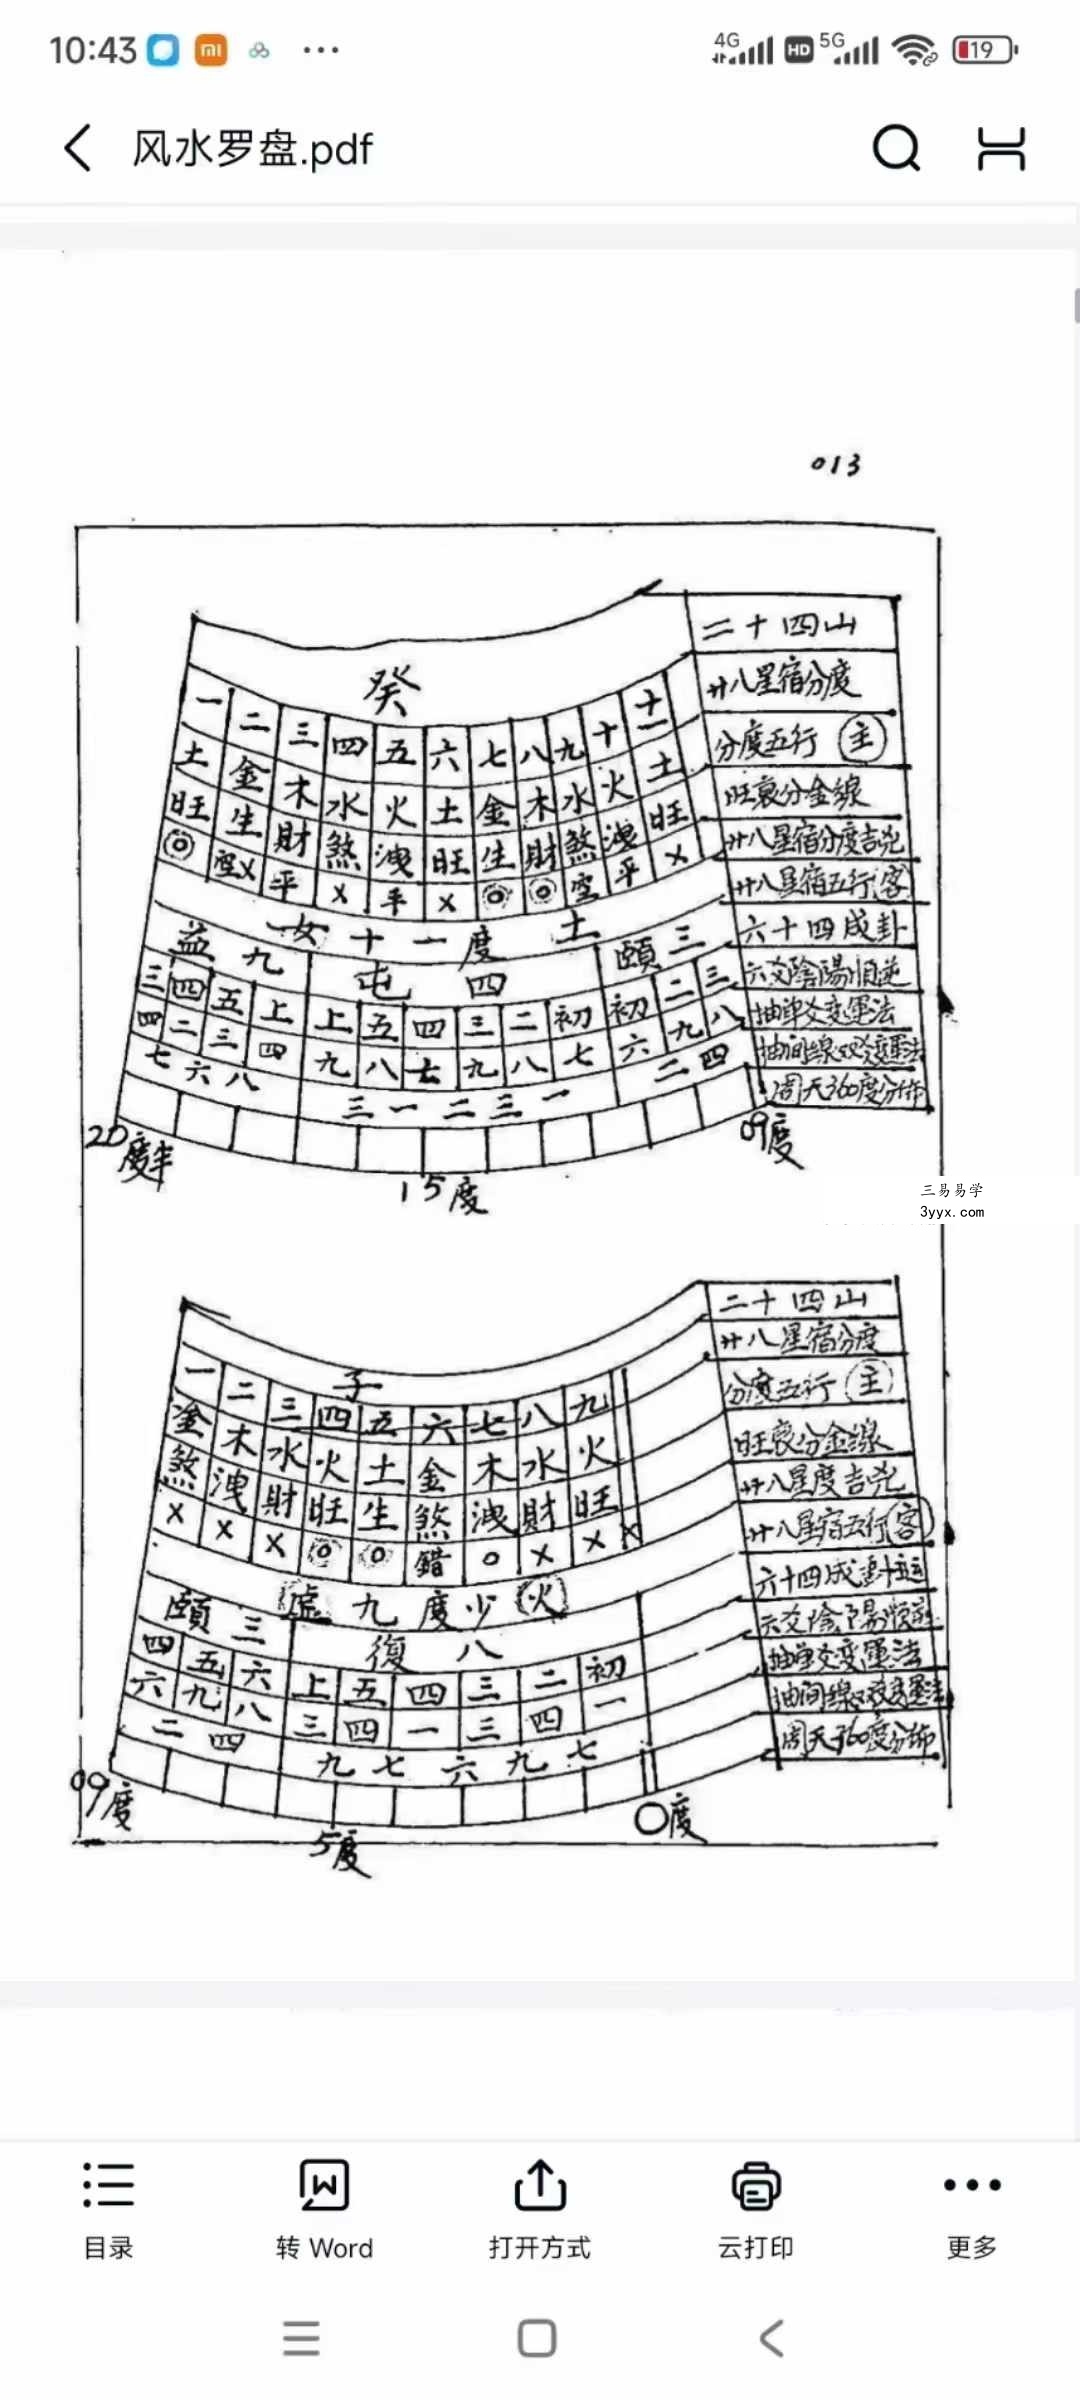 10:43
4G HD 5G 19
风水罗盘.pdf
013
癸
二十四山
一 二 三 四 五 六 七 八 九 十 十一
廿八星宿分度
土 金 木 水 火 土 金 木 水 火 土
分度五行 主
旺 生 財 煞 洩 旺 生 財 煞 洩 旺
旺衰分金線
◎ 空X 平 X 平 X ◎ ◎ 空 平 X
廿八星宿分度吉兇
女十一度 土
廿八星宿五行 客
益九 屯四 頤三
六十四成卦
三 四 五 上 上 五 四 三 二 初 初 二 三
六爻陰陽順逆
四 二 三 四 九 八 七 九 八 七 六 九 八
抽單爻變運法
七 六 八 三 一 二 三 一 二 四
抽间線双爻變運法
周天360度分佈
20度半
15度
09度
三易易学
3yyx.com
子
二十四山
一 二 三 四 五 六 七 八 九
廿八星宿分度
金 木 水 火 土 金 木 水 火
分度五行 主
煞 洩 財 旺 生 煞 洩 財 旺
旺衰分金線
X X X ◎ ◎ 錯 o X X X
廿八星度吉兇
虛九度少 火
廿八星宿五行 客
頤三 復八
六十四成卦運
四 五 六 上 五 四 三 二 初
六爻陰陽順逆
六 九 八 三 四 一 三 四 一
抽單爻變運法
二 四 九 七 六 九 七
抽间線双爻變運法
周天360度分佈
09度
5度
0度
目录
转 Word
打开方式
云打印
更多